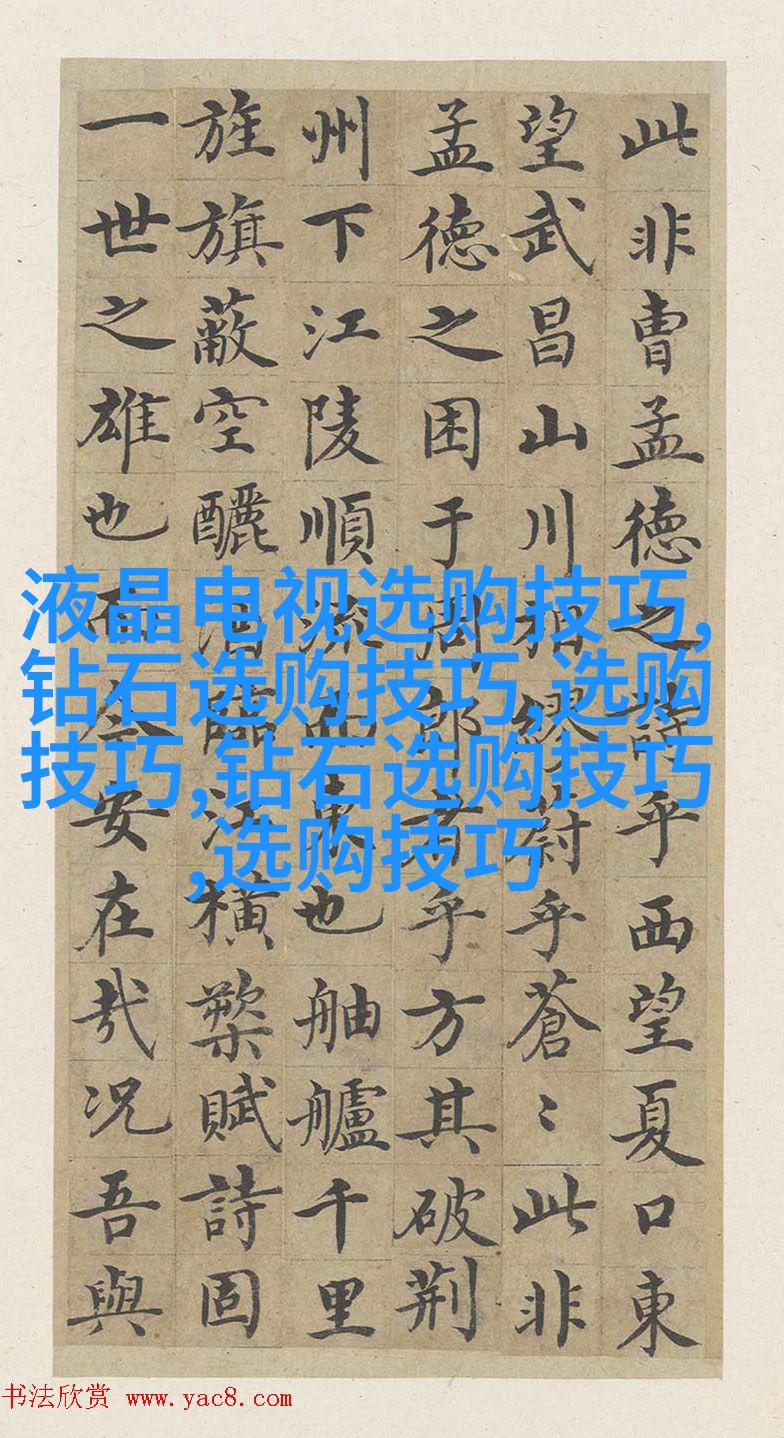 此非曺孟德之詩乎西望夏口東
望武昌山川相繆蔚乎蒼〻此非
孟德之困于周郎者乎方其破荆
州下江陵順流而東也舳艫千里
旌旗蔽空釃酒臨江橫槊賦詩固
一世之雄也而今安在哉况吾與
液晶电视选购技巧,
钻石选购技巧,选购
技巧,钻石选购技巧
,选购技巧
书法欣赏 www.yac8.com